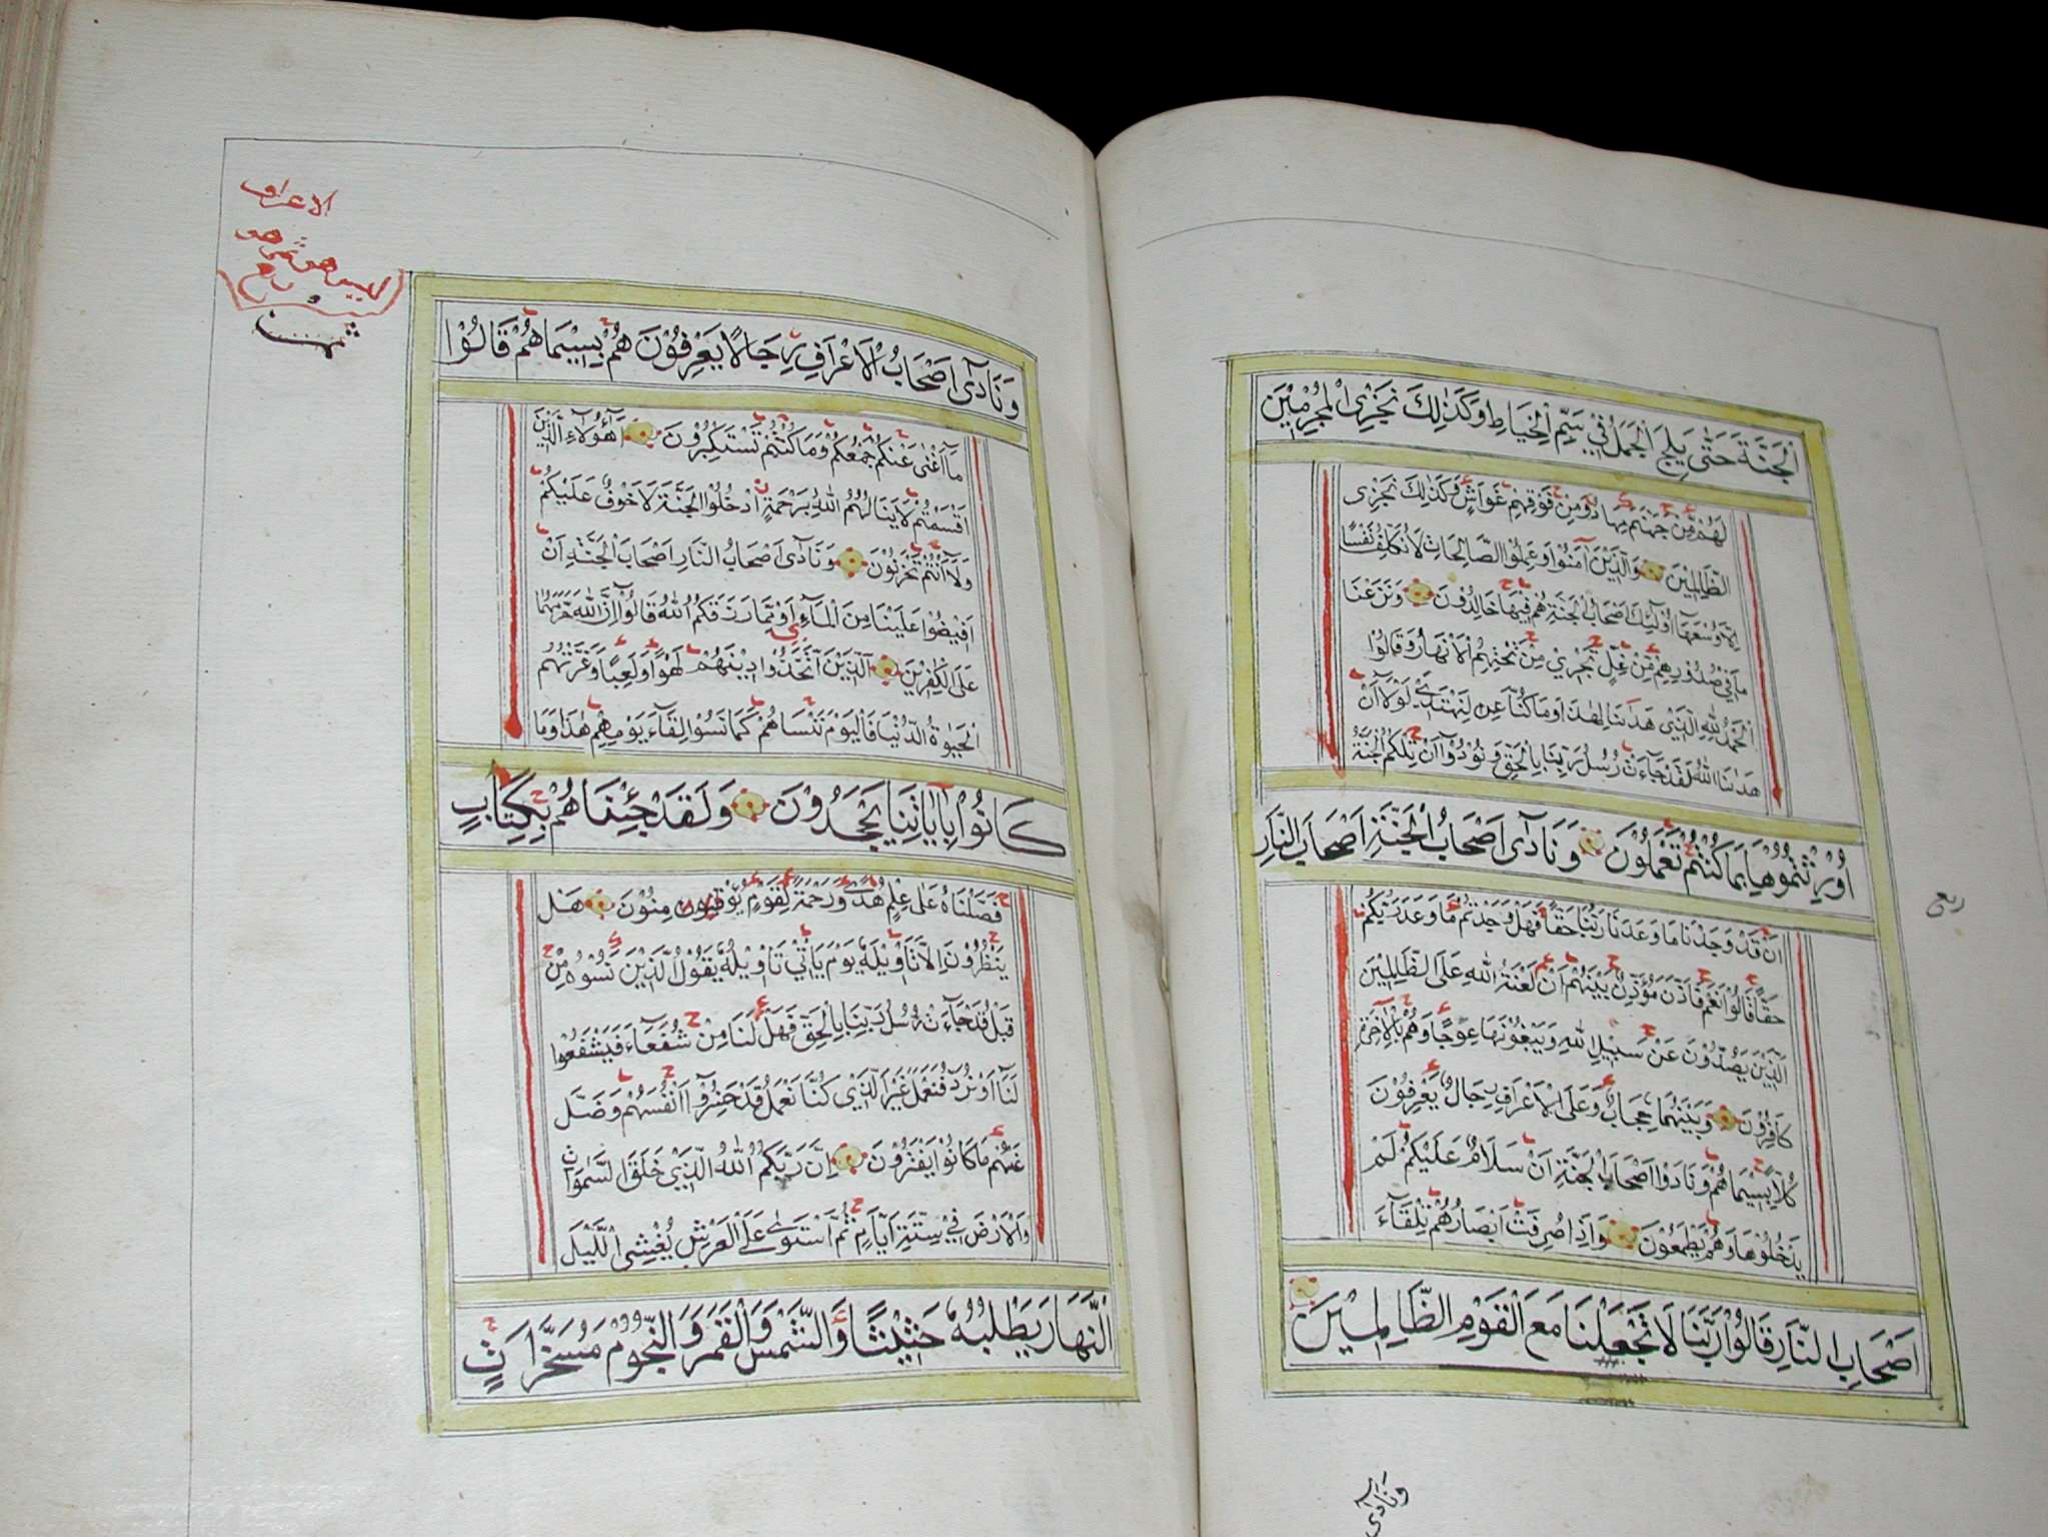 الْجَنَّةَ حَتّٰى يَلِجَ الْجَمَلُ فِيْ سَمِّ الْخِيَاطِ وَكَذٰلِكَ نَجْزِى الْمُجْرِمِيْنَ
لَهُمْ مِّنْ جَهَنَّمَ مِهَادٌ وَّمِنْ فَوْقِهِمْ غَوَاشٍ وَّكَذٰلِكَ نَجْزِى
الظَّالِمِيْنَ وَالَّذِيْنَ آمَنُوْا وَعَمِلُوا الصَّالِحَاتِ لَا نُكَلِّفُ نَفْسًا
اِلَّا وُسْعَهَا اُولٰٓئِكَ اَصْحَابُ الْجَنَّةِ هُمْ فِيْهَا خَالِدُوْنَ وَنَزَعْنَا
مَا فِيْ صُدُوْرِهِمْ مِّنْ غِلٍّ تَجْرِيْ مِنْ تَحْتِهِمُ الْاَنْهَارُ وَقَالُوْا
الْحَمْدُ لِلّٰهِ الَّذِيْ هَدٰىنَا لِهٰذَا وَمَا كُنَّا لِنَهْتَدِيَ لَوْلَآ اَنْ
هَدٰىنَا اللّٰهُ لَقَدْ جَآءَتْ رُسُلُ رَبِّنَا بِالْحَقِّ وَنُوْدُوْٓا اَنْ تِلْكُمُ الْجَنَّةُ
اُوْرِثْتُمُوْهَا بِمَا كُنْتُمْ تَعْمَلُوْنَ وَنَادٰٓى اَصْحَابُ الْجَنَّةِ اَصْحَابَ النَّارِ
اَنْ قَدْ وَجَدْنَا مَا وَعَدَنَا رَبُّنَا حَقًّا فَهَلْ وَجَدْتُّمْ مَّا وَعَدَ رَبُّكُمْ
حَقًّا قَالُوْا نَعَمْ فَاَذَّنَ مُؤَذِّنٌ بَيْنَهُمْ اَنْ لَّعْنَةُ اللّٰهِ عَلَى الظَّالِمِيْنَ
الَّذِيْنَ يَصُدُّوْنَ عَنْ سَبِيْلِ اللّٰهِ وَيَبْغُوْنَهَا عِوَجًا وَهُمْ بِالْاٰخِرَةِ
كَافِرُوْنَ وَبَيْنَهُمَا حِجَابٌ وَّعَلَى الْاَعْرَافِ رِجَالٌ يَّعْرِفُوْنَ
كُلًّا بِسِيْمَاهُمْ وَنَادَوْا اَصْحَابَ الْجَنَّةِ اَنْ سَلَامٌ عَلَيْكُمْ لَمْ
يَدْخُلُوْهَا وَهُمْ يَطْمَعُوْنَ وَاِذَا صُرِفَتْ اَبْصَارُهُمْ تِلْقَآءَ
اَصْحَابِ النَّارِ قَالُوْا رَبَّنَا لَا تَجْعَلْنَا مَعَ الْقَوْمِ الظَّالِمِيْنَ
ربع
ونادٰٓى
الاعراف
وَنَادٰٓى اَصْحَابُ الْاَعْرَافِ رِجَالًا يَعْرِفُوْنَهُمْ بِسِيْمَاهُمْ قَالُوْا
مَآ اَغْنٰى عَنْكُمْ جَمْعُكُمْ وَمَا كُنْتُمْ تَسْتَكْبِرُوْنَ آهٰٓؤُلَآءِ الَّذِيْنَ
اَقْسَمْتُمْ لَا يَنَالُهُمُ اللّٰهُ بِرَحْمَةٍ اُدْخُلُوا الْجَنَّةَ لَا خَوْفٌ عَلَيْكُمْ
وَلَآ اَنْتُمْ تَحْزَنُوْنَ وَنَادٰٓى اَصْحَابُ النَّارِ اَصْحَابَ الْجَنَّةِ اَنْ
اَفِيْضُوْا عَلَيْنَا مِنَ الْمَآءِ اَوْ مِمَّا رَزَقَكُمُ اللّٰهُ قَالُوْٓا اِنَّ اللّٰهَ حَرَّمَهُمَا
عَلَى الْكٰفِرِيْنَ الَّذِيْنَ اتَّخَذُوْا دِيْنَهُمْ لَهْوًا وَّلَعِبًا وَّغَرَّتْهُمُ
الْحَيٰوةُ الدُّنْيَا فَالْيَوْمَ نَنْسَاهُمْ كَمَا نَسُوْا لِقَآءَ يَوْمِهِمْ هٰذَا وَمَا
كَانُوْا بِاٰيَاتِنَا يَجْحَدُوْنَ وَلَقَدْ جِئْنَاهُمْ بِكِتَابٍ
فَصَّلْنَاهُ عَلٰى عِلْمٍ هُدًى وَّرَحْمَةً لِّقَوْمٍ يُّؤْمِنُوْنَ هَلْ
يَنْظُرُوْنَ اِلَّا تَاْوِيْلَهٗ يَوْمَ يَاْتِيْ تَاْوِيْلُهٗ يَقُوْلُ الَّذِيْنَ نَسُوْهُ مِنْ
قَبْلُ قَدْ جَآءَتْ رُسُلُ رَبِّنَا بِالْحَقِّ فَهَلْ لَّنَا مِنْ شُفَعَآءَ فَيَشْفَعُوْا
لَنَآ اَوْ نُرَدُّ فَنَعْمَلَ غَيْرَ الَّذِيْ كُنَّا نَعْمَلُ قَدْ خَسِرُوْٓا اَنْفُسَهُمْ وَضَلَّ
عَنْهُمْ مَا كَانُوْا يَفْتَرُوْنَ اِنَّ رَبَّكُمُ اللّٰهُ الَّذِيْ خَلَقَ السَّمٰوَاتِ
وَالْاَرْضَ فِيْ سِتَّةِ اَيَّامٍ ثُمَّ اسْتَوٰى عَلَى الْعَرْشِ يُغْشِى اللَّيْلَ
النَّهَارَ يَطْلُبُهٗ حَثِيْثًا وَّالشَّمْسَ وَالْقَمَرَ وَالنُّجُوْمَ مُسَخَّرَاتٍ